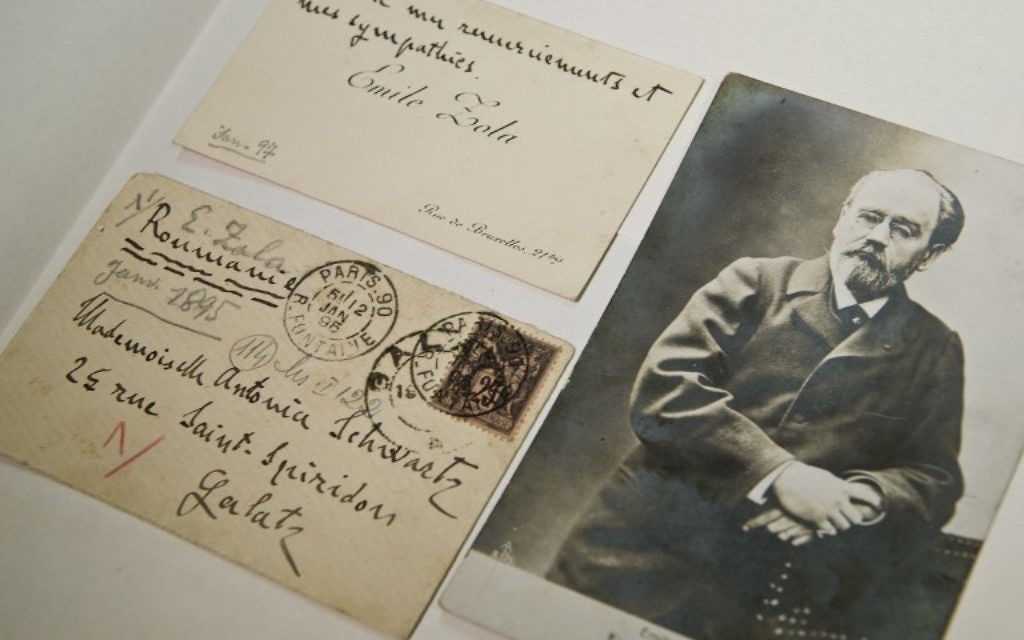 mes remerciements et
mes sympathies.
Emile Zola
Jan. 97
Rue de Bruxelles, 21 bis
N/
E. Zola
Roumanie
Janv. 1895
PARIS 90
12
JAN
96
R. FONTAINE
GALA
25
Mademoiselle Antonia Schwartz
25 rue Saint-Spiridon
Galatz
N/